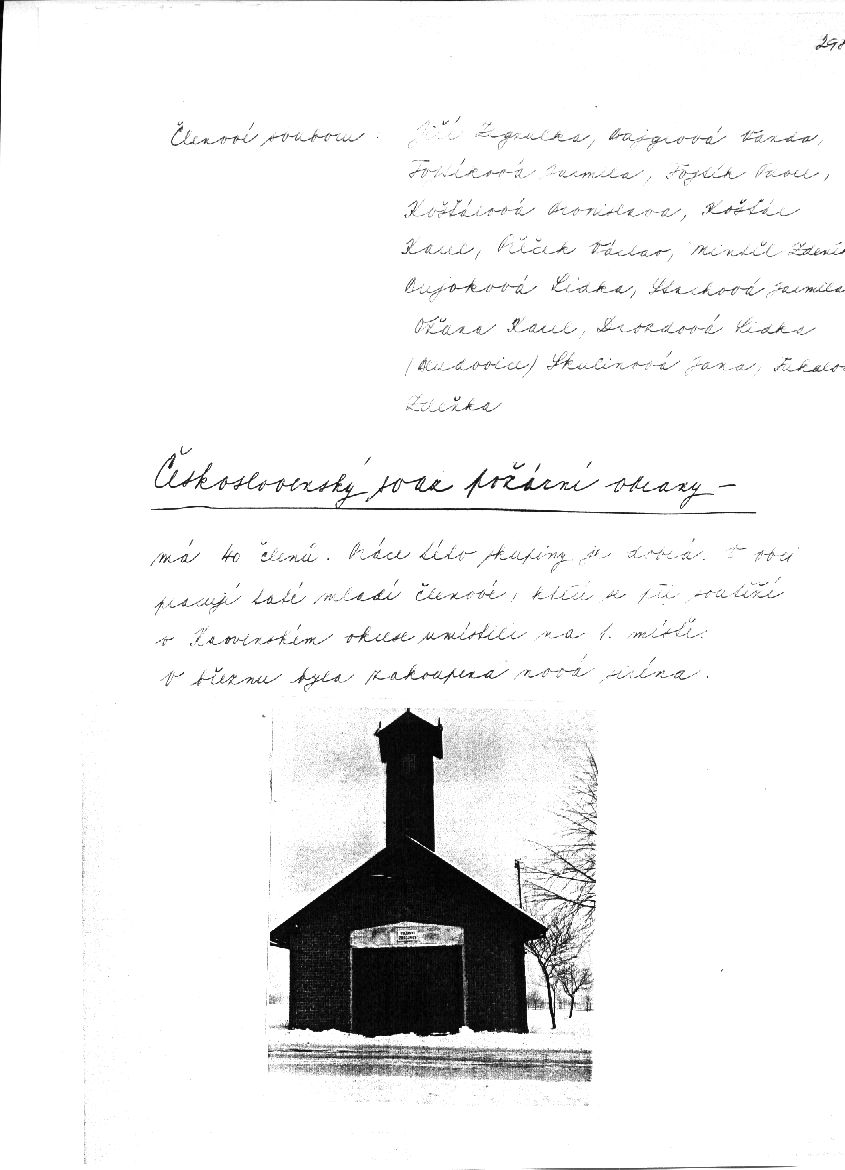 298
Členové souboru: Jiří Zgrulka, Bajgrová Vanda,
Jarmila, Fojtík Pavel,
Košťálová Bronislava, Košťál
Karel, Václav, Zdeněk
Bujoková Lidka, Jarmila
Karel, Drozdová Lidka
Skulinová Jana,
Zdeňka
Československý svaz požární ochrany -
má 40 členů. Práce této skupiny je dobrá. V obci
pracují také mladí členové, kteří se při soutěži
v Karvinském okrese umístili na 1. místě.
V březnu byla zakoupena nová siréna.